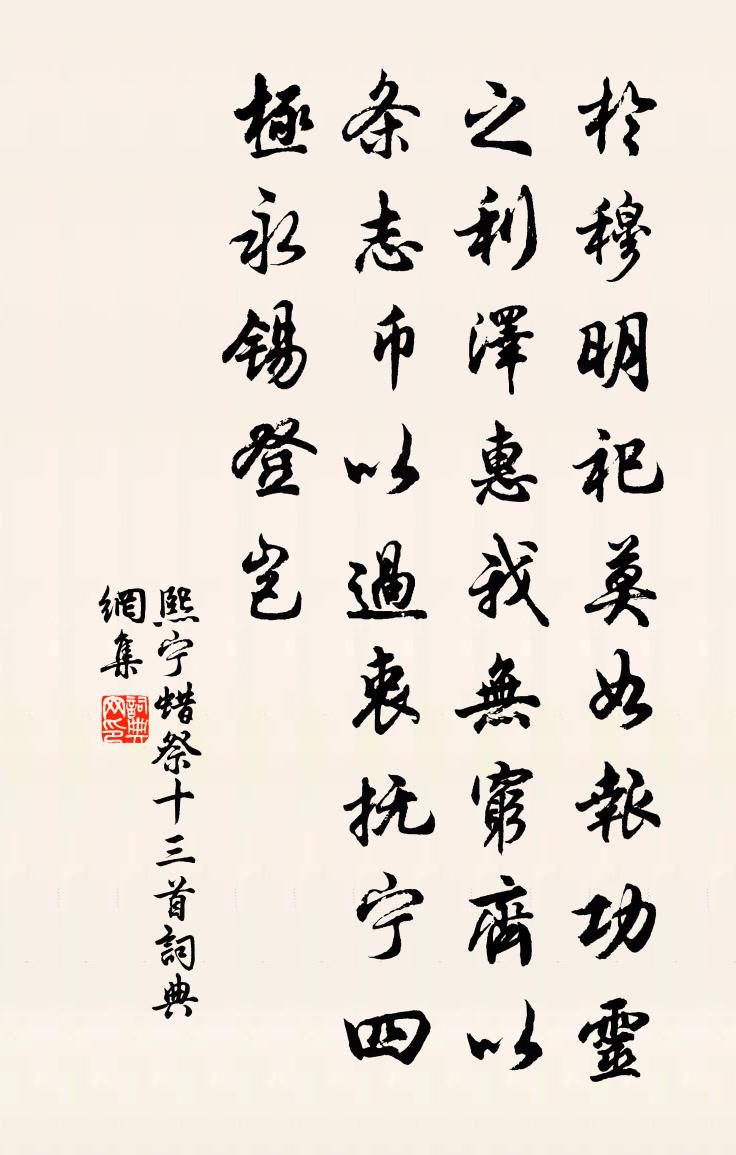 於穆明祀莫如報功靈
之利澤惠我無窮齊以
条志币以過衷抚宁四
極永锡登岂
熙宁蜡祭十三首詞典
網集
詞典
网印